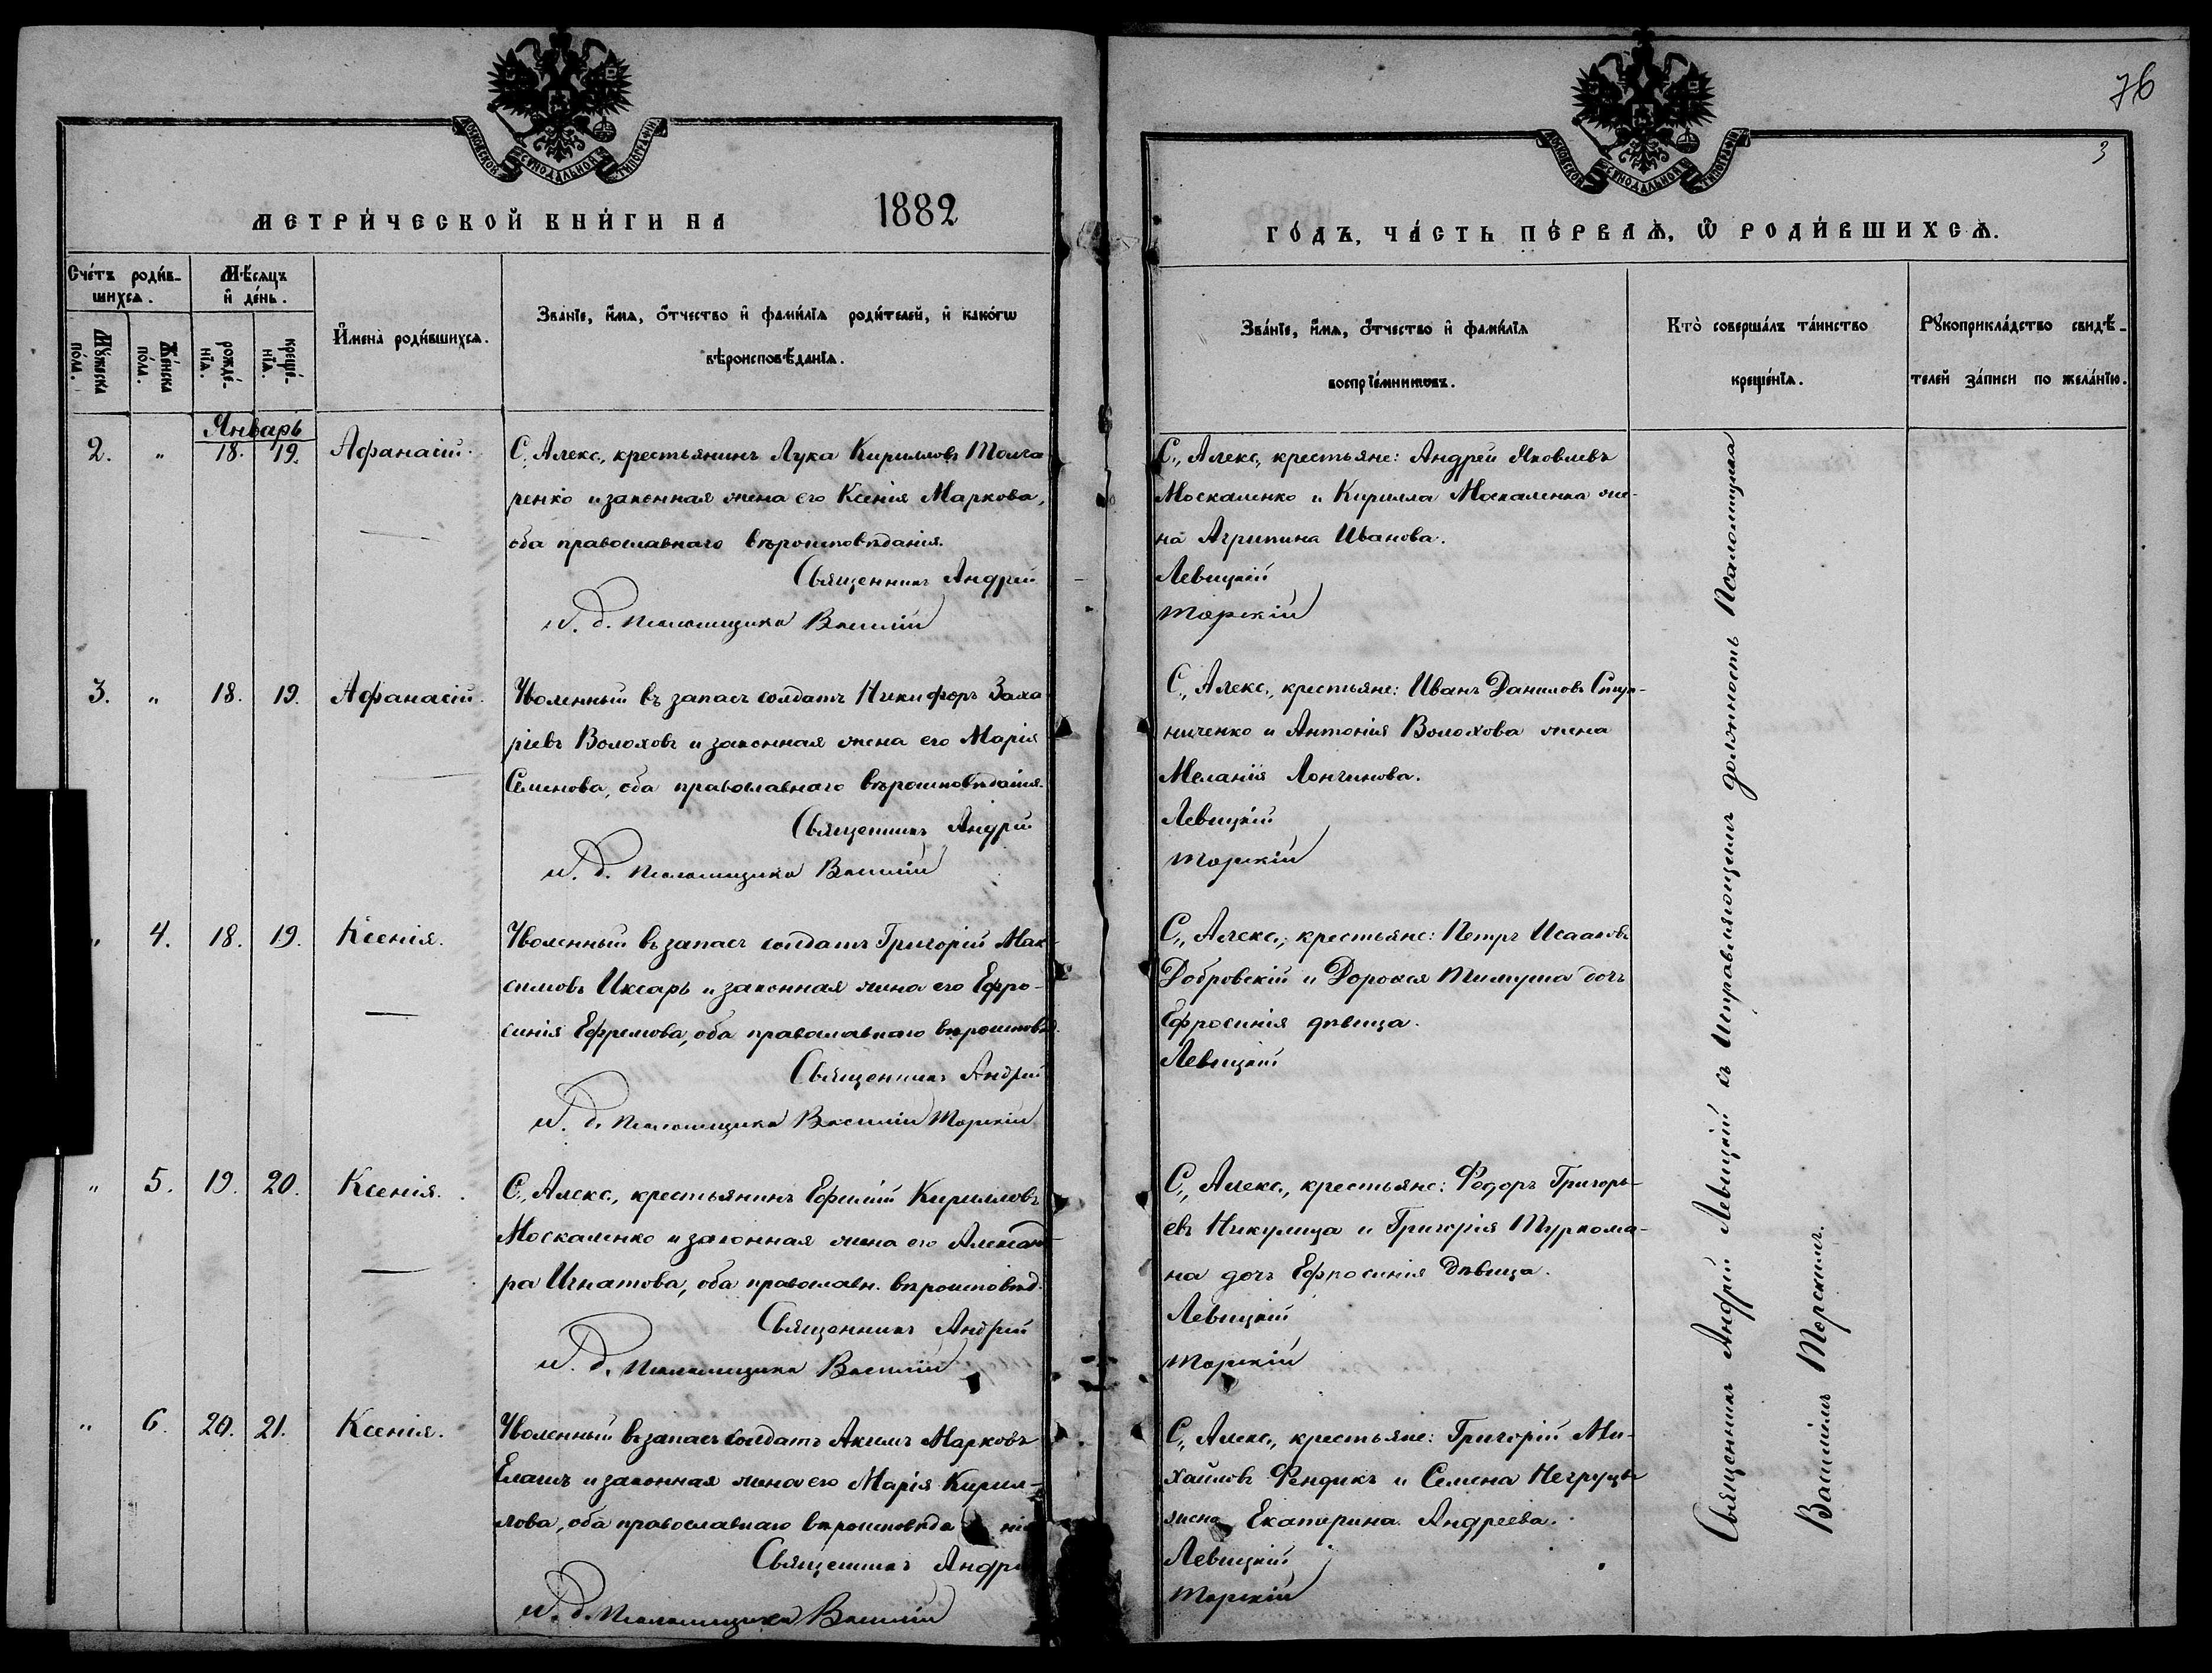 76
3
МОСКОВСКОЙ СѴНОДАЛЬНОЙ ТИПОГРАФІИ
МОСКОВСКОЙ СѴНОДАЛЬНОЙ ТИПОГРАФІИ
МЕТРИ́ЧЕСКОЙ КНИ́ГИ НА 1882
ГО́ДЪ, ЧА́СТЬ ПЕ́РВАѦ, Ѿ РОДИ́ВШИХСѦ.
Сче́тъ роди́в-
шихсѧ.
Мѣ́сяцъ
и҆ де́нь.
Му́жеска
по́ла.
Же́нска
по́ла.
рожде́-
нїѧ.
креще́-
нїѧ.
И҆мена̀ роди́вшихсѧ.
Зва́нїе, и҆́мѧ, ѻ҆́тчество и҆ фами́лїѧ роди́телей, и҆ како́гѡ
вѣроисповѣ́данїѧ.
Зва́нїе, и҆́мѧ, ѻ҆́тчество и҆ фами́лїѧ
воспрїе́мникѡвъ.
Кто̀ соверша́лъ та́инство
креще́нїѧ.
Рꙋкоприкла́дство свидѣ́-
телей за́писи по жела́нїю.
Январь
2. " 18. 19. Афанасій.
С., Алекс., крестьянинъ Лука Кирилловъ
ренко и законная жена его Ксенія Маркова,
оба православнаго вѣроисповѣданія.
Священникъ Андрей
и. д. Псаломщика Василій
С., Алекс., крестьяне: Андрей Яковлевъ
Москаленко и Кирилла Москаленка же-
на Агрипина Иванова.
Левицкій
Торскій
3. " 18. 19. Афанасій.
Уволенный въ запасъ солдатъ Никифоръ Заха
ріевъ Волоховъ и законная жена его Марія
Семенова, оба православнаго вѣроисповѣданія.
Священникъ Андрей
и. д. Псаломщика Василій
С., Алекс., крестьяне: Иванъ Даниловъ
ниченко и Антонія Волохова жена
Меланія Лонгинова.
Левицкій
Торскій
" 4. 18. 19. Ксенія.
Уволенный въ запасъ солдатъ Григорій Мак-
симовъ Иксарь и законная жена его Ефро-
синія Ефремова, оба православнаго вѣроисповѣд.
Священникъ Андрей
и. д. Псаломщика Василій Торскій
С., Алекс., крестьяне: Петръ Исааковъ
Добровскій и Дорофея Тимуша дочь
Ефросинія дѣвица.
Левицкій
" 5. 19. 20. Ксенія.
С., Алекс., крестьянинъ Ефимій Кирилловъ
Москаленко и законная жена его Александ-
ра Игнатова, оба православн. вѣроисповѣд.
Священникъ Андрей
и. д. Псаломщика Василій
С., Алекс., крестьяне: Федоръ Григорь-
евъ Никулица и Григорія Туркома-
на дочь Ефросинія дѣвица.
Левицкій
Торскій
" 6. 20. 21. Ксенія.
Уволенный въ запасъ солдатъ Акимъ Марковъ
Елашъ и законная жена его Марія Кирил-
лова, оба православнаго вѣроисповѣда нія
Священникъ Андре
и. д. Псаломщика Василій
С., Алекс., крестьяне: Григорій Ми-
хайловъ Фендикъ и Семена Негруца
жена Екатерина Андреева.
Левицкій
Торскій
Священникъ Андрей Левицкій съ Исправляющимъ должность Псаломщика
Василіемъ Торскимъ.